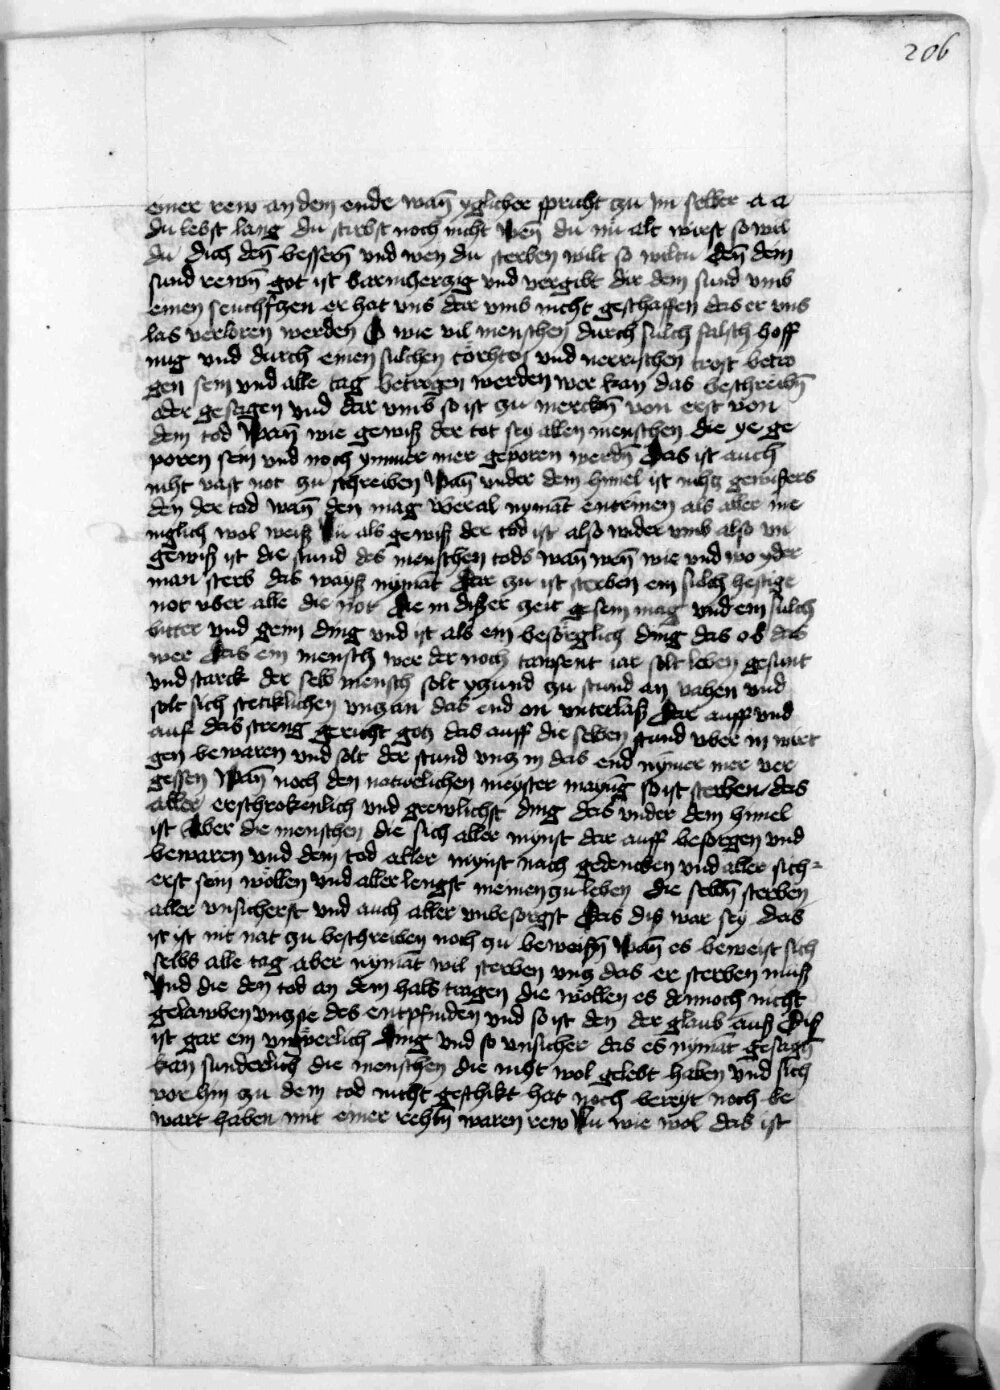 206
einer rew an dem ende wan̄ yglicher spricht zu im selber a a
du lebst lang du stirbst noch nicht Wen̄ du nu alt wirst so wil
du dich den̄ bessern̄ vnd wen du sterben wilt so wiltu den̄ dein
sund rewn̄ got ist barmherczig vnd vergibt dir dein sund vmb
einen seuchfczen er hat vns dar vmb nicht geschaffen das er vns
las verloren werden O wie vil menschen durch sulch falsch hoff
nug vnd durch einen sulchen törhtos vnd nerrischen trost betro
gen sein vnd alle tag betrogen werden wer kan das beschreibn̄
oder gesagen vnd dar vmb so ist zu mercken von erst von
dem tod Wan̄ wie gewiß der tot sey allen menschen die ye ge
poren sein vnd noch ymmer mer geporen werdn̄ Das ist auch
niht vast not zu schreiben Wan̄ vnder dem himel ist nihcz gewisers
den der tod wan̄ den mag vberal nymāt entrinen als aller me
niglich wol weiß Nu als gewiß der tod ist also wider vmb also vn
gewiß ist die stund des menschen tods wan̄ wen̄ wie vnd wo yder
man sterb das wayß nymāt Dar zu ist sterben ein sulch hestige
not vber alle die not Die in diser zeit gesein mag vnd ein sulch
bitter vnd gem ding vnd ist als ein besörglich ding das ob das
wer Das ein mensch wer der noch tawsent iar solt leben gesunt
vnd starck der selb mensch solt yczund zu stund an vahen vnd
solt sich stetiklichen vncz an das end on vnterlaß Dar auff vnd
auf das streng gericht gocz das auff die selben stund vber in wirt
gen bewaren vnd solt der stund vncz in das end nymer mer ver
gessen Wan̄ noch den naturlichen meyster maynug so ist sterben das
aller erschrokenlich vnd grewlichst ding das vnder dem himel
ist Aber die menschen die sich aller mynst dar auff besorgen vnd
bewaren vnd dem tod aller mynst nach gedencken vnd aller sich-
erst sein wöllen vnd aller lengst meinen zu leben die selbn̄ sterben
aller vnsicherst vnd auch aller vnbesorgst Das dis war sey das
ist ist nit nat zu beschreiben noch zu beweisn̄ Wan̄ es beweist sich
selbs alle tag aber nymāt wil sterben vncz das er sterben muß
Vnd die den tod an dem hals tragen die wöllen es dennoch nicht
gelawben vncz sie des entpfinden vnd so ist den der glaub auß Dis
ist gar ein vngverlich ding vnd so vnsicher das es nymāt gesagn̄
kan sunderlich die menschen die niht wol gelebt haben vnd sich
vor hin zu dem tod nicht geschikt hat noch bereyt noch be
wart haben mit einer rehtn̄ waren rew Nu wie wol das ist